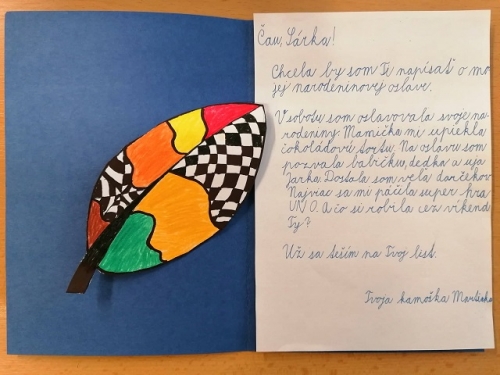 Čau, Šárka!
Chcela by som Ti napísať o mo
jej narodeninovej oslave.
V sobotu som oslavovala svoje na-
rodeniny. Mamička mi upiekla
čokoládovú tortu. Na oslavu som
pozvala babičku, dedka a uja
Jarka. Dostala som veľa darčekov.
Najviac sa mi páčila super hra
UNO. A čo si robila cez víkend
Ty?
Už sa teším na Tvoj list.
Tvoja kamoška